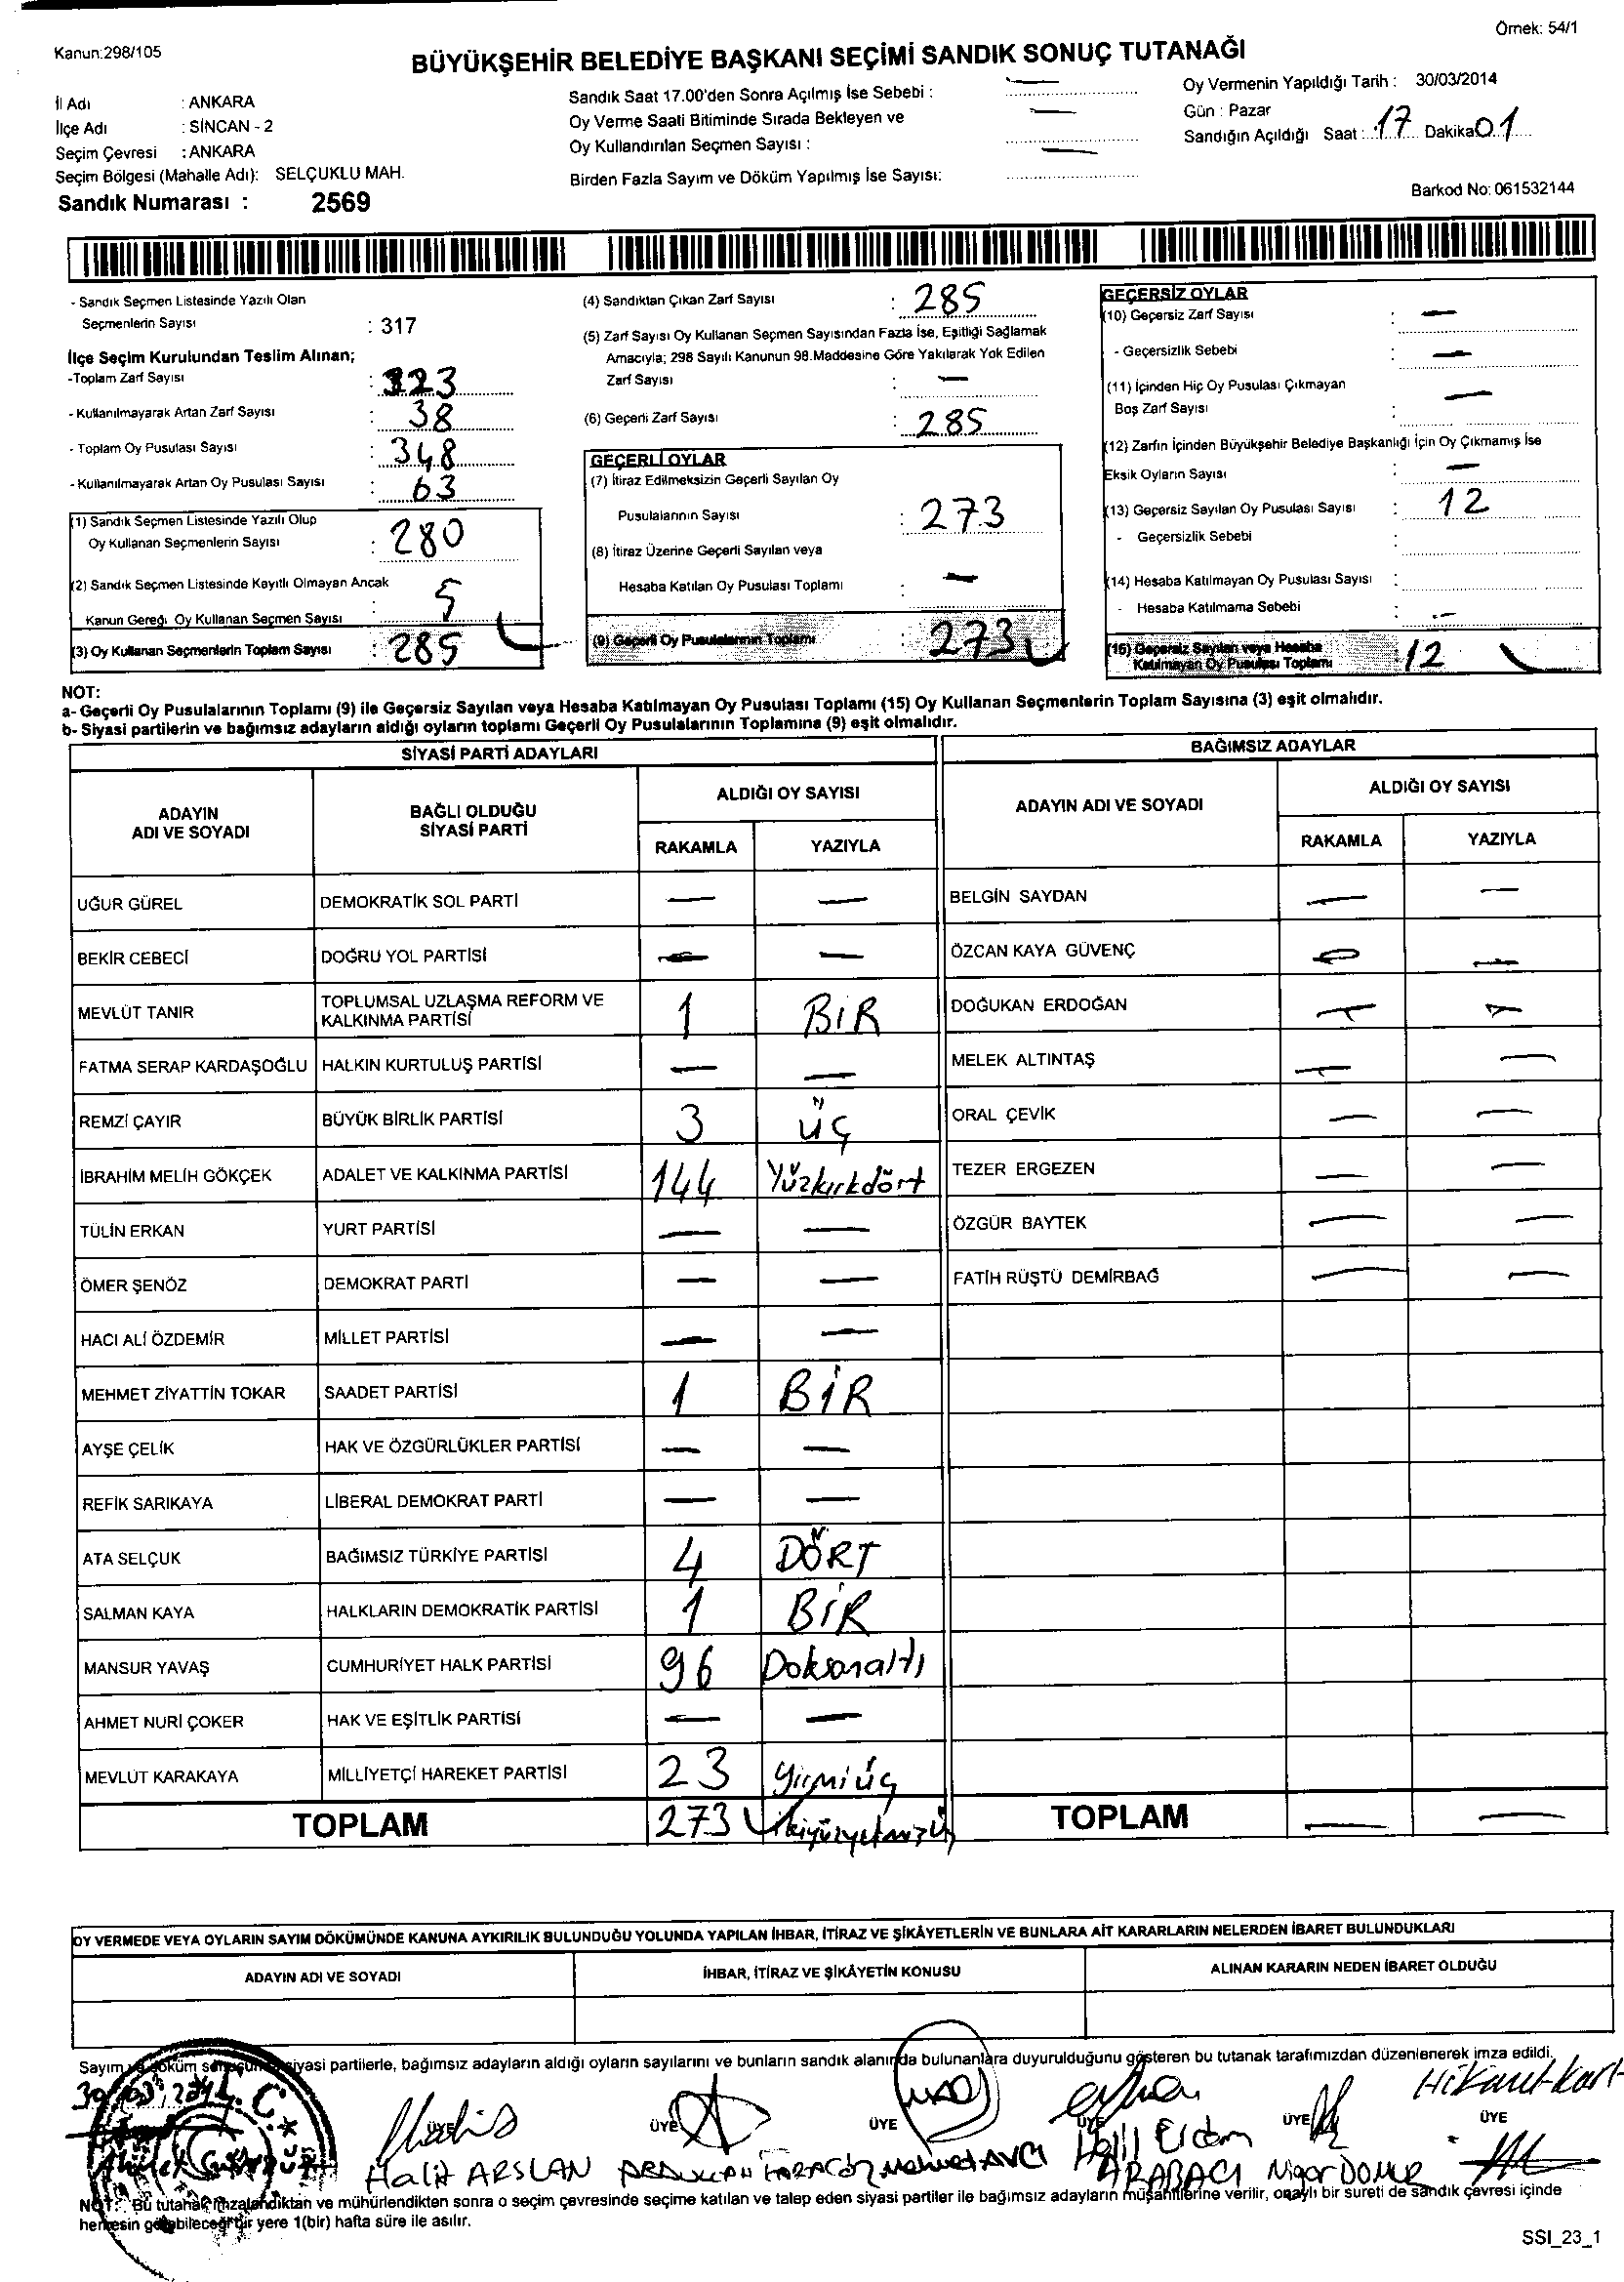 Örnek: 54/1
Kanun:298/105
BÜYÜKŞEHİR BELEDİYE BAŞKANI SEÇİMİ SANDIK SONUÇ TUTANAĞI
İl Adı : ANKARA
İlçe Adı : SİNCAN - 2
Seçim Çevresi : ANKARA
Seçim Bölgesi (Mahalle Adı): SELÇUKLU MAH.
Sandık Numarası : 2569
Sandık Saat 17.00'den Sonra Açılmış İse Sebebi : —
Oy Verme Saati Bitiminde Sırada Bekleyen ve
Oy Kullandırılan Seçmen Sayısı : —
Birden Fazla Sayım ve Döküm Yapılmış İse Sayısı: —
Oy Vermenin Yapıldığı Tarih : 30/03/2014
Gün : Pazar
Sandığın Açıldığı Saat : 17 Dakika 01
Barkod No: 061532144
- Sandık Seçmen Listesinde Yazılı Olan
Seçmenlerin Sayısı : 317
İlçe Seçim Kurulundan Teslim Alınan;
-Toplam Zarf Sayısı : 323
- Kullanılmayarak Artan Zarf Sayısı : 38
- Toplam Oy Pusulası Sayısı : 348
- Kullanılmayarak Artan Oy Pusulası Sayısı : 63
(1) Sandık Seçmen Listesinde Yazılı Olup
Oy Kullanan Seçmenlerin Sayısı : 280
(2) Sandık Seçmen Listesinde Kayıtlı Olmayan Ancak
Kanun Gereği Oy Kullanan Seçmen Sayısı : 5
(3) Oy Kullanan Seçmenlerin Toplam Sayısı : 285
(4) Sandıktan Çıkan Zarf Sayısı : 285
(5) Zarf Sayısı Oy Kullanan Seçmen Sayısından Fazla İse, Eşitliği Sağlamak
Amacıyla; 298 Sayılı Kanunun 98.Maddesine Göre Yakılarak Yok Edilen
Zarf Sayısı : —
(6) Geçerli Zarf Sayısı : 285
GEÇERLİ OYLAR
(7) İtiraz Edilmeksizin Geçerli Sayılan Oy
Pusulalarının Sayısı : 273
(8) İtiraz Üzerine Geçerli Sayılan veya
Hesaba Katılan Oy Pusulası Toplamı : —
(9) Geçerli Oy Pusulalarının Toplamı : 273
GEÇERSİZ OYLAR
(10) Geçersiz Zarf Sayısı : —
- Geçersizlik Sebebi : —
(11) İçinden Hiç Oy Pusulası Çıkmayan
Boş Zarf Sayısı : —
(12) Zarfın İçinden Büyükşehir Belediye Başkanlığı İçin Oy Çıkmamış İse
Eksik Oyların Sayısı : —
(13) Geçersiz Sayılan Oy Pusulası Sayısı : 12
- Geçersizlik Sebebi :
(14) Hesaba Katılmayan Oy Pusulası Sayısı :
- Hesaba Katılmama Sebebi : —
(15) Geçersiz Sayılan veya Hesaba
Katılmayan Oy Pusulası Toplamı : 12
NOT:
a- Geçerli Oy Pusulalarının Toplamı (9) ile Geçersiz Sayılan veya Hesaba Katılmayan Oy Pusulası Toplamı (15) Oy Kullanan Seçmenlerin Toplam Sayısına (3) eşit olmalıdır.
b- Siyasi partilerin ve bağımsız adayların aldığı oyların toplamı Geçerli Oy Pusulalarının Toplamına (9) eşit olmalıdır.
SİYASİ PARTİ ADAYLARI BAĞIMSIZ ADAYLAR
ADAYIN ADI VE SOYADI BAĞLI OLDUĞU SİYASİ PARTİ ALDIĞI OY SAYISI ADAYIN ADI VE SOYADI ALDIĞI OY SAYISI
RAKAMLA YAZIYLA RAKAMLA YAZIYLA
UĞUR GÜREL DEMOKRATİK SOL PARTİ — — BELGİN SAYDAN — —
BEKİR CEBECİ DOĞRU YOL PARTİSİ — — ÖZCAN KAYA GÜVENÇ — —
MEVLÜT TANIR TOPLUMSAL UZLAŞMA REFORM VE KALKINMA PARTİSİ 1 BİR DOĞUKAN ERDOĞAN — —
FATMA SERAP KARDAŞOĞLU HALKIN KURTULUŞ PARTİSİ — — MELEK ALTINTAŞ — —
REMZİ ÇAYIR BÜYÜK BİRLİK PARTİSİ 3 üç ORAL ÇEVİK — —
İBRAHİM MELİH GÖKÇEK ADALET VE KALKINMA PARTİSİ 144 Yüzkırkdört TEZER ERGEZEN — —
TÜLİN ERKAN YURT PARTİSİ — — ÖZGÜR BAYTEK — —
ÖMER ŞENÖZ DEMOKRAT PARTİ — — FATİH RÜŞTÜ DEMİRBAĞ — —
HACI ALİ ÖZDEMİR MİLLET PARTİSİ — —
MEHMET ZİYATTİN TOKAR SAADET PARTİSİ 1 BİR
AYŞE ÇELİK HAK VE ÖZGÜRLÜKLER PARTİSİ — —
REFİK SARIKAYA LİBERAL DEMOKRAT PARTİ — —
ATA SELÇUK BAĞIMSIZ TÜRKİYE PARTİSİ 4 DÖRT
SALMAN KAYA HALKLARIN DEMOKRATİK PARTİSİ 1 BİR
MANSUR YAVAŞ CUMHURİYET HALK PARTİSİ 96 Doksanaltı
AHMET NURİ ÇOKER HAK VE EŞİTLİK PARTİSİ — —
MEVLÜT KARAKAYA MİLLİYETÇİ HAREKET PARTİSİ 23 yirmiüç
TOPLAM 273 ikiyüzyetmişüç TOPLAM — —
OY VERMEDE VEYA OYLARIN SAYIM DÖKÜMÜNDE KANUNA AYKIRILIK BULUNDUĞU YOLUNDA YAPILAN İHBAR, İTİRAZ VE ŞİKÂYETLERİN VE BUNLARA AİT KARARLARIN NELERDEN İBARET BULUNDUKLARI
ADAYIN ADI VE SOYADI İHBAR, İTİRAZ VE ŞİKÂYETİN KONUSU ALINAN KARARIN NEDEN İBARET OLDUĞU
Sayım ve döküm sonucunda siyasi partilerle, bağımsız adayların aldığı oyların sayılarını ve bunların sandık alanında bulunanlara duyurulduğunu gösteren bu tutanak tarafımızdan düzenlenerek imza edildi.
ÜYE ÜYE ÜYE ÜYE ÜYE ÜYE
Halit ARSLAN Mehmet AVCI Halil Erdem ARABACI
NOT: Bu tutanak imzalandıktan ve mühürlendikten sonra o seçim çevresinde seçime katılan ve talep eden siyasi partiler ile bağımsız adayların müşahitlerine verilir, onaylı bir sureti de sandık çevresi içinde
herkesin görebileceği bir yere 1(bir) hafta süre ile asılır.
SSI_23_1